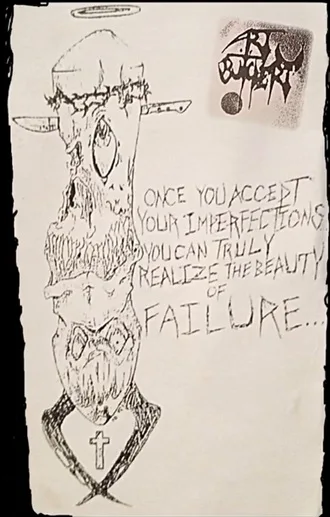 ART
BUTCHERY
ONCE YOU ACCEPT
YOUR IMPERFECTIONS
YOU CAN TRULY
REALIZE THE BEAUTY
OF
FAILURE...